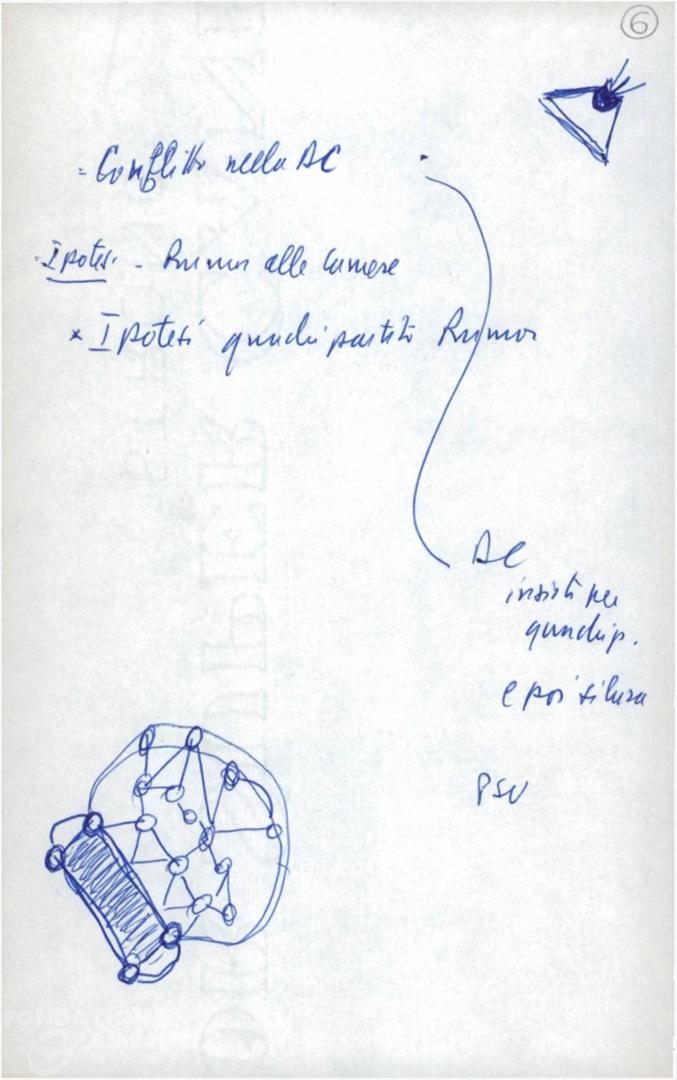 6
- Conflitto nella DC
- Ipotesi - Rumor alle Camere
x Ipotesi quadripartito Rumor
DC
insiste per
quadrip.
e poi silura
PSU
FONDAZIONE